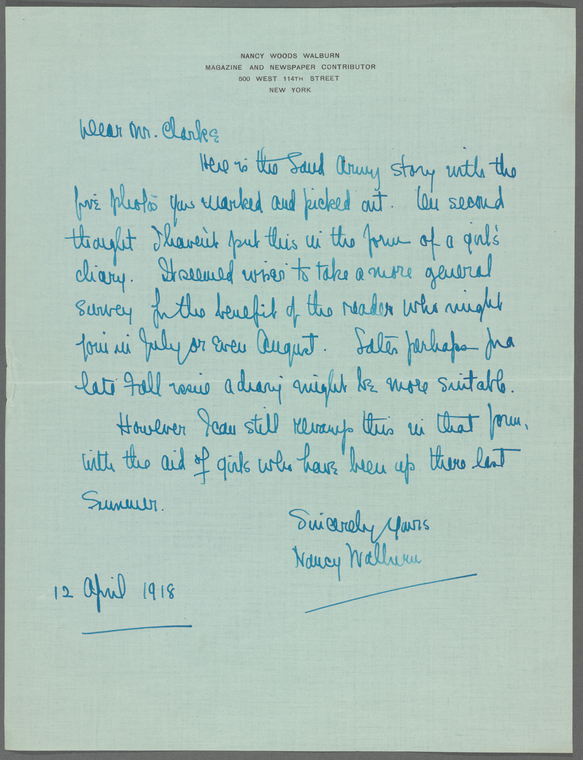 NANCY WOODS WALBURN
MAGAZINE AND NEWSPAPER CONTRIBUTOR
500 WEST 114TH STREET
NEW YORK
Dear Mr. Clarke
Here is the Land Army story with the
five photos you marked and picked out. On second
thought I haven't put this in the form of a girl's
diary. It seemed wiser to take a more general
survey for the benefit of the reader who might
join in July or even August. Later perhaps for a
late Fall issue a diary might be more suitable.
However I can still revamp this in that form,
with the aid of girls who have been up there last
Summer.
Sincerely yours
Nancy Walburn
12 April 1918